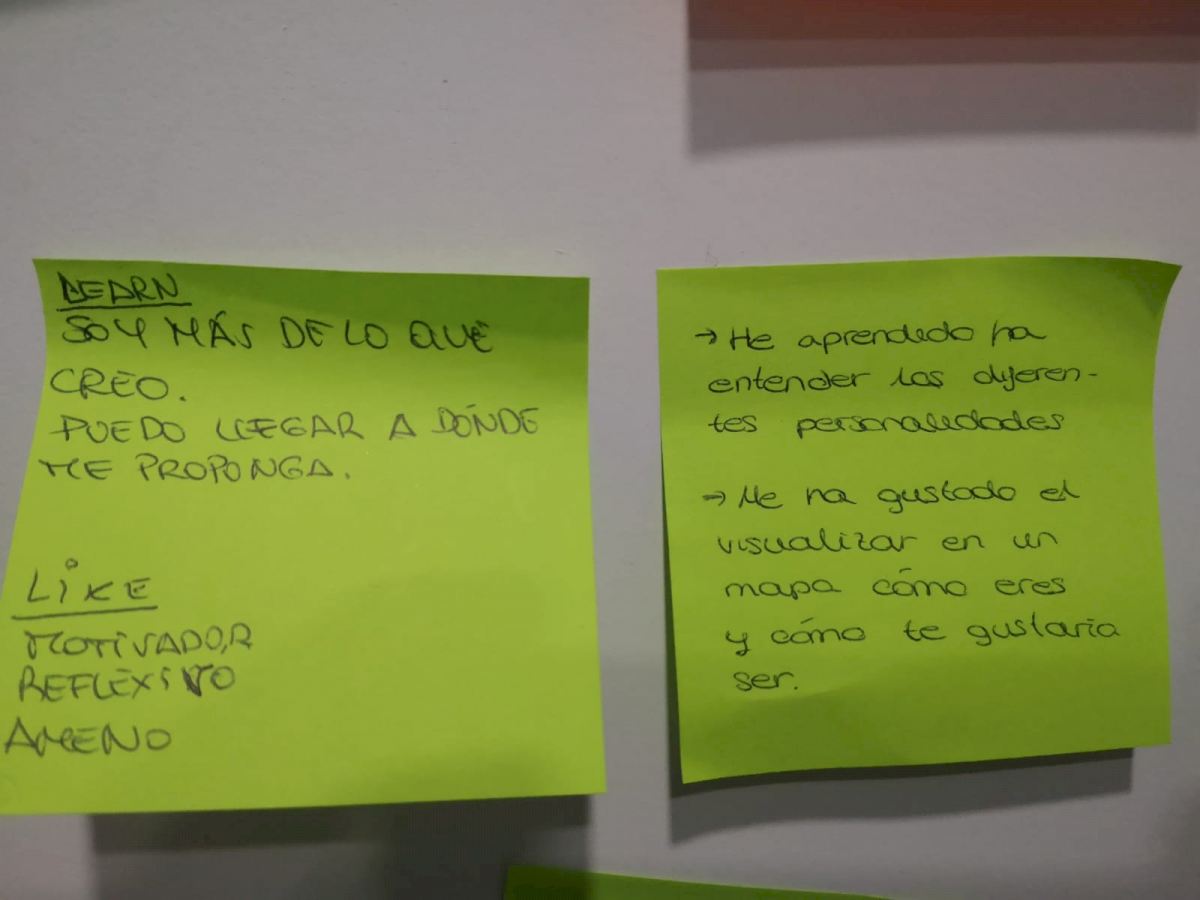 LEARN
SOY MÁS DE LO QUE
CREO.
PUEDO LLEGAR A DÓNDE
ME PROPONGA.
LIKE
MOTIVADOR
REFLEXIVO
AMENO
→ He aprendido ha
entender las diferen-
tes personalidades
→ Me ha gustado el
visualizar en un
mapa cómo eres
y cómo te gustaría
ser.